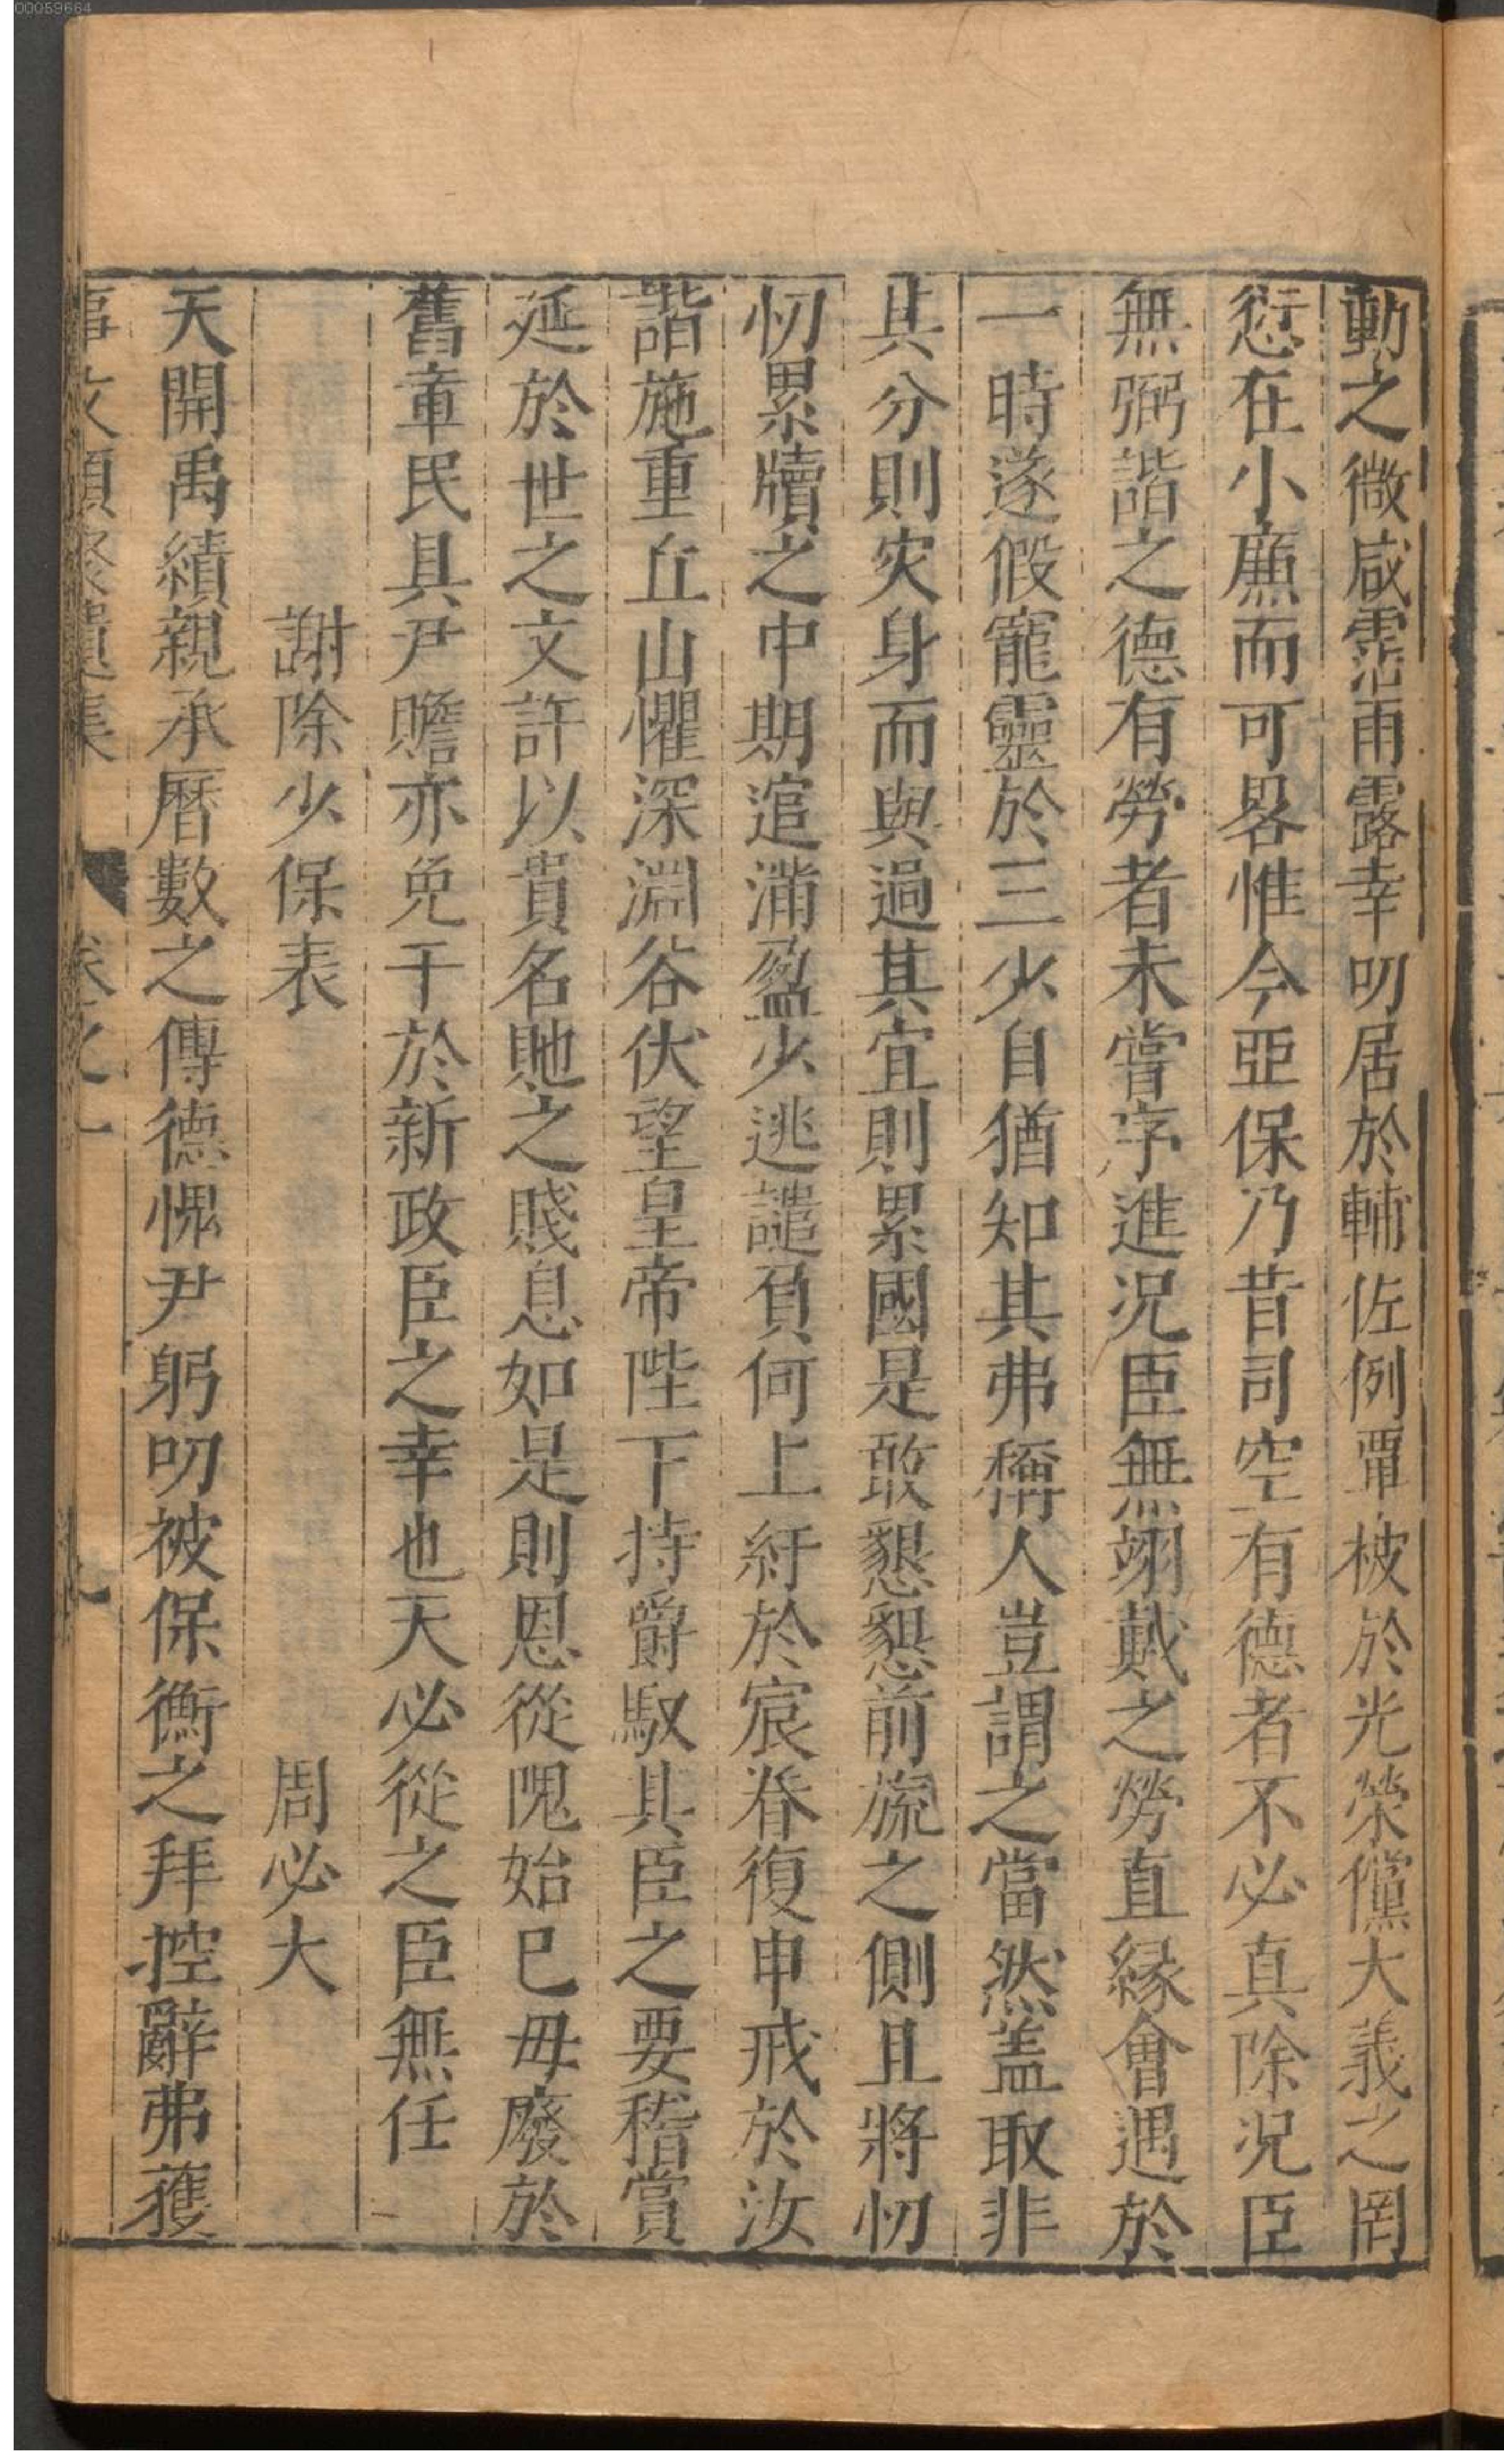 00059664
動之微咸霑雨露幸叨居於輔佐例覃被於光榮儻大義之罔
愆在小廉而可畧惟今亞保乃昔司空有德者不必真除况臣
無弼諧之德有勞者未嘗序進况臣無翊戴之勞直縁會遇於
一時遂假寵靈於三少自猶知其弗稱人豈謂之當然盖取非
其分則灾身而與過其宜則累國是敢懇懇前旒之側且將忉
忉累牘之中期逭滿盈少逃譴負何上紆於宸眷復申戒於汝
諧施重丘山懼深淵谷伏望皇帝陛下持爵馭其臣之要稽賞
延於世之文許以貴名貤之賤息如是則恩從隗始巳毋廢於
舊章民具尹瞻亦免干於新政臣之幸也天必從之臣無任
謝除少保表 周必大
天開禹績親承曆數之傳德愧尹躬叨被保衡之拜控辭弗獲
事文類聚遺集 卷之一